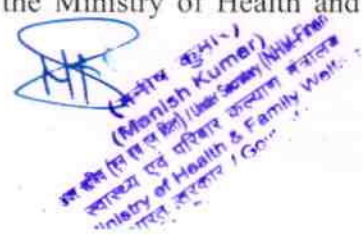 the Ministry of Health and
(मनीष कुमार)
(Manish Kumar)
/ Under Secretary (NHM-Finan
स्वास्थ्य एवं परिवार कल्याण मंत्रालय
inistry of Health & Family Welf
भारत सरकार / Gov